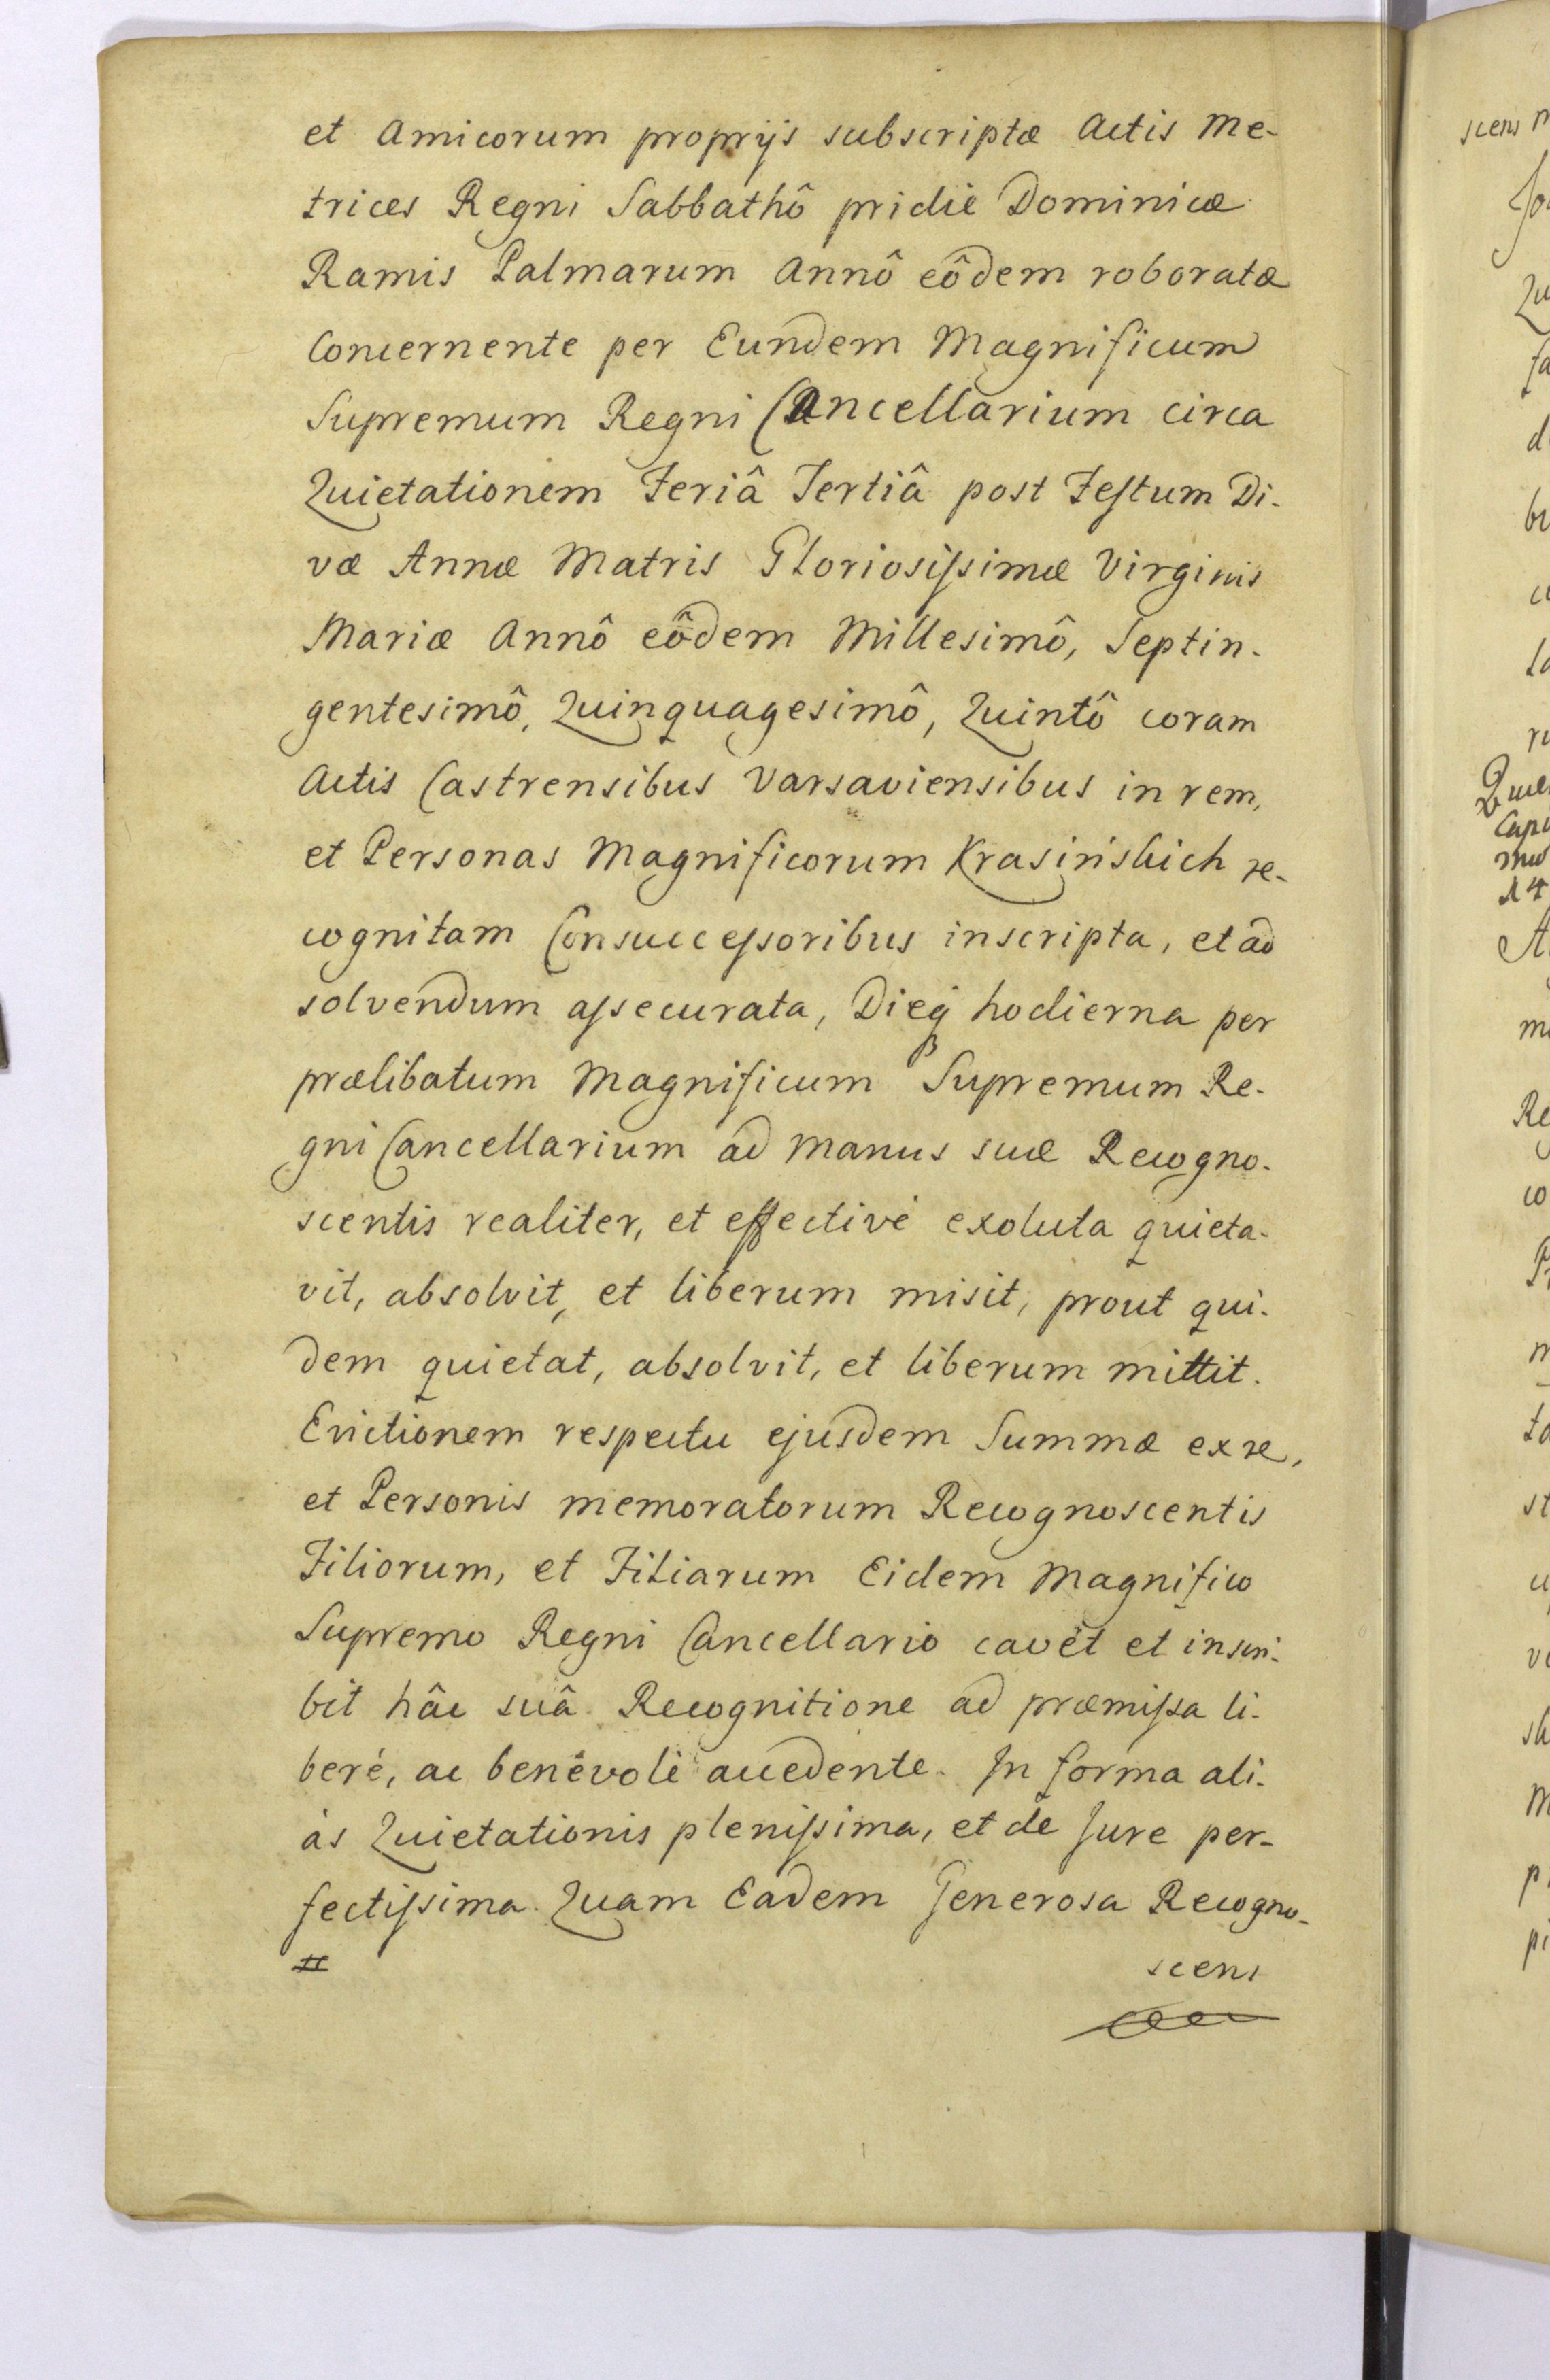 et Amicorum proprijs subscriptæ Actis Me-
trices Regni Sabbathô pridie Dominicæ
Ramis Palmarum Annô eôdem roboratæ
Concernente per Eundem Magnificum
Supremum Regni Cancellarium circa
Quietationem Feriâ Tertiâ post Festum Di-
væ Annæ Matris Gloriosissimæ Virginis
Mariæ Annô eôdem Millesimô, Septin-
gentesimô, Quinquagesimô, Quintô coram
Actis Castrensibus Varsaviensibus in rem,
et Personas Magnificorum Krasińskich re-
cognitam Consuccessoribus inscripta, et ad
solvendum assecurata, Dieq hodierna per
prælibatum Magnificum Supremum Re-
gni Cancellarium ad manus suæ Recogno-
scentis realiter, et effectivè exoluta quieta-
vit, absolvit, et liberum misit, prout qui-
dem quietat, absolvit, et liberum mittit.
Evictionem respectu ejusdem Summæ ex re,
et Personis memoratorum Recognoscentis
Filiorum, et Filiarum Eidem Magnifico
Supremo Regni Cancellario cavet et inscri-
bit hâc suâ Recognitione ad præmissa li-
berè, ac benevolè accedente. In forma ali-
às Quietationis plenissima, et de Jure per-
fectissima. Quam Eadem Generosa Recogno-
scens